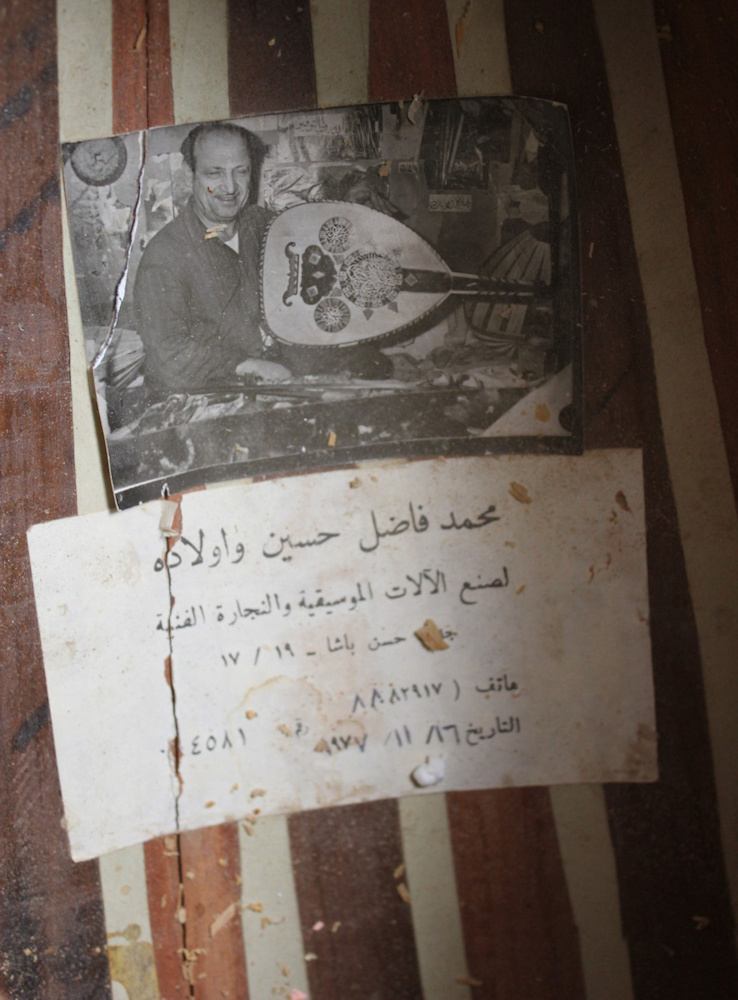 محمد فاضل حسين واولاده
لصنع الآلات الموسيقية والنجارة الفنية
حسن باشا ـ ١٩ / ١٧
هاتف ( ٨٨٨٢٩١٧
التاريخ ١٦/ ١١/ ١٩٧٧ رقم ٤٥٨١